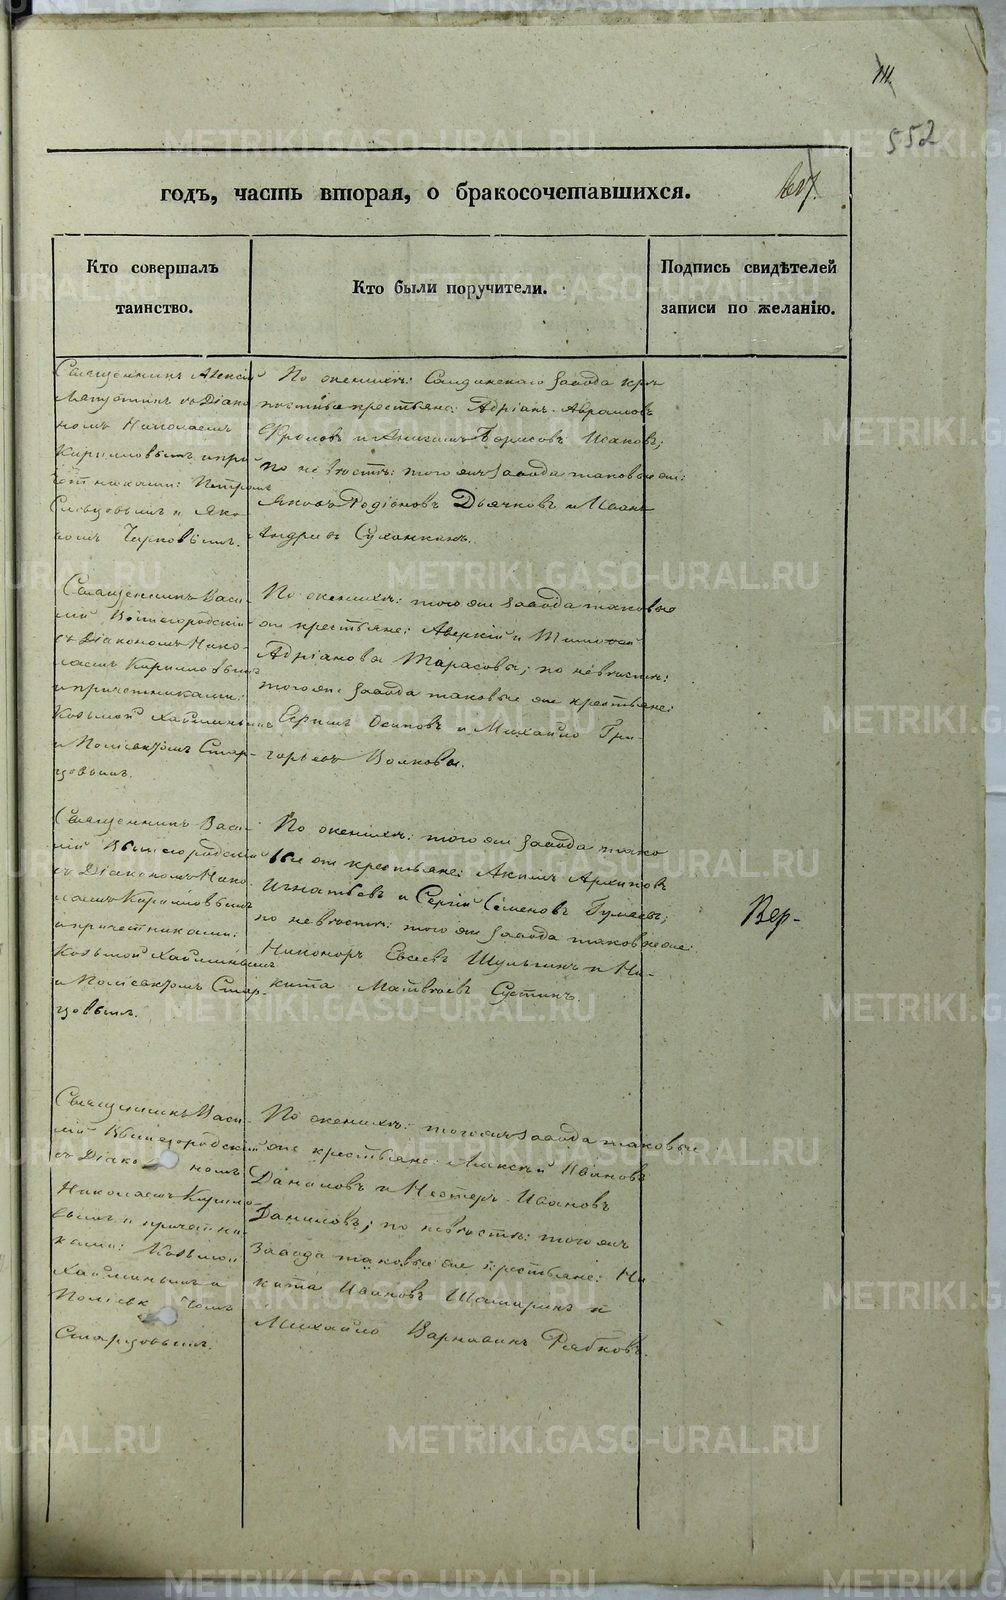 552
годъ, часть вторая, о бракосочетавшихся.
Кто совершалъ
таинство.
Кто были поручители.
Подпись свидѣтелей
записи по желанію.
Священникъ Алексій
съ Діако
номъ Николаемъ
Кирилловымъ и при
четниками: Петромъ
Словцовымъ и Яко
вомъ Черповымъ.
По женихѣ: Салдинскаго завода крѣ
постные крестьяне: Адріанъ Аврамовъ
Фроловъ и Борисовъ Исаковъ;
по невѣстѣ: того же завода таковые же:
Яковъ Родіоновъ Дьячковъ и Иванъ
Андреевъ Суханкинъ.
Священникъ Васи
лій Вышегородскій
съ Діакономъ Нико
лаемъ Кирилловымъ
и причетниками:
Козьмой Хайминымъ
и Поліевктомъ Стар
цовымъ.
По женихѣ: того же завода таковые
же крестьяне: Аверкій и Тимофей
Адріановы Тарасовы; по невѣстѣ:
того же завода таковые же крестьяне:
Ефимъ Осиповъ и Михайло Гри
горьевъ Волковы.
Священникъ Васи
лій Вышегородскій
съ Діакономъ Нико
лаемъ Кирилловымъ
и причетниками:
Козьмой Хайминымъ
и Поліевктомъ Стар
цовымъ.
По женихѣ: того же завода тако
вые же крестьяне: Акимъ Архиповъ
Игнатьевъ и Сергій Семеновъ Гуляевъ;
по невѣстѣ: того же завода таковые же:
Никоноръ Евсеевъ Шульгинъ и Ни-
кита Матвѣевъ Сустинъ.
Вер-
Священникъ Васи
лій Вышегородскій
съ Діако номъ
Николаемъ Кирило-
вымъ и причетни-
ками: Козьмой
Хайминымъ и
Поліевк томъ
Старцовымъ.
По женихѣ: того же завода таковые
же крестьяне: Алексѣй Ивановъ
Даниловъ и Нестеръ Ивановъ
Даниловъ; по невѣстѣ: того же
завода таковые же крестьяне: Ни
кита Ивановъ Шамаринъ и
Михайло Варнавинъ Рябковъ.
METRIKI.GASO-URAL.RU